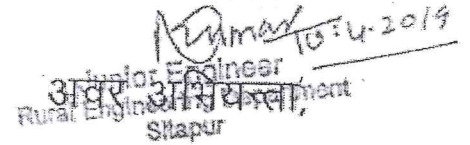 Kumar 10.4.2019
Junior Engineer
अवर अभियन्ता,
Rural Engineering Department
Sitapur